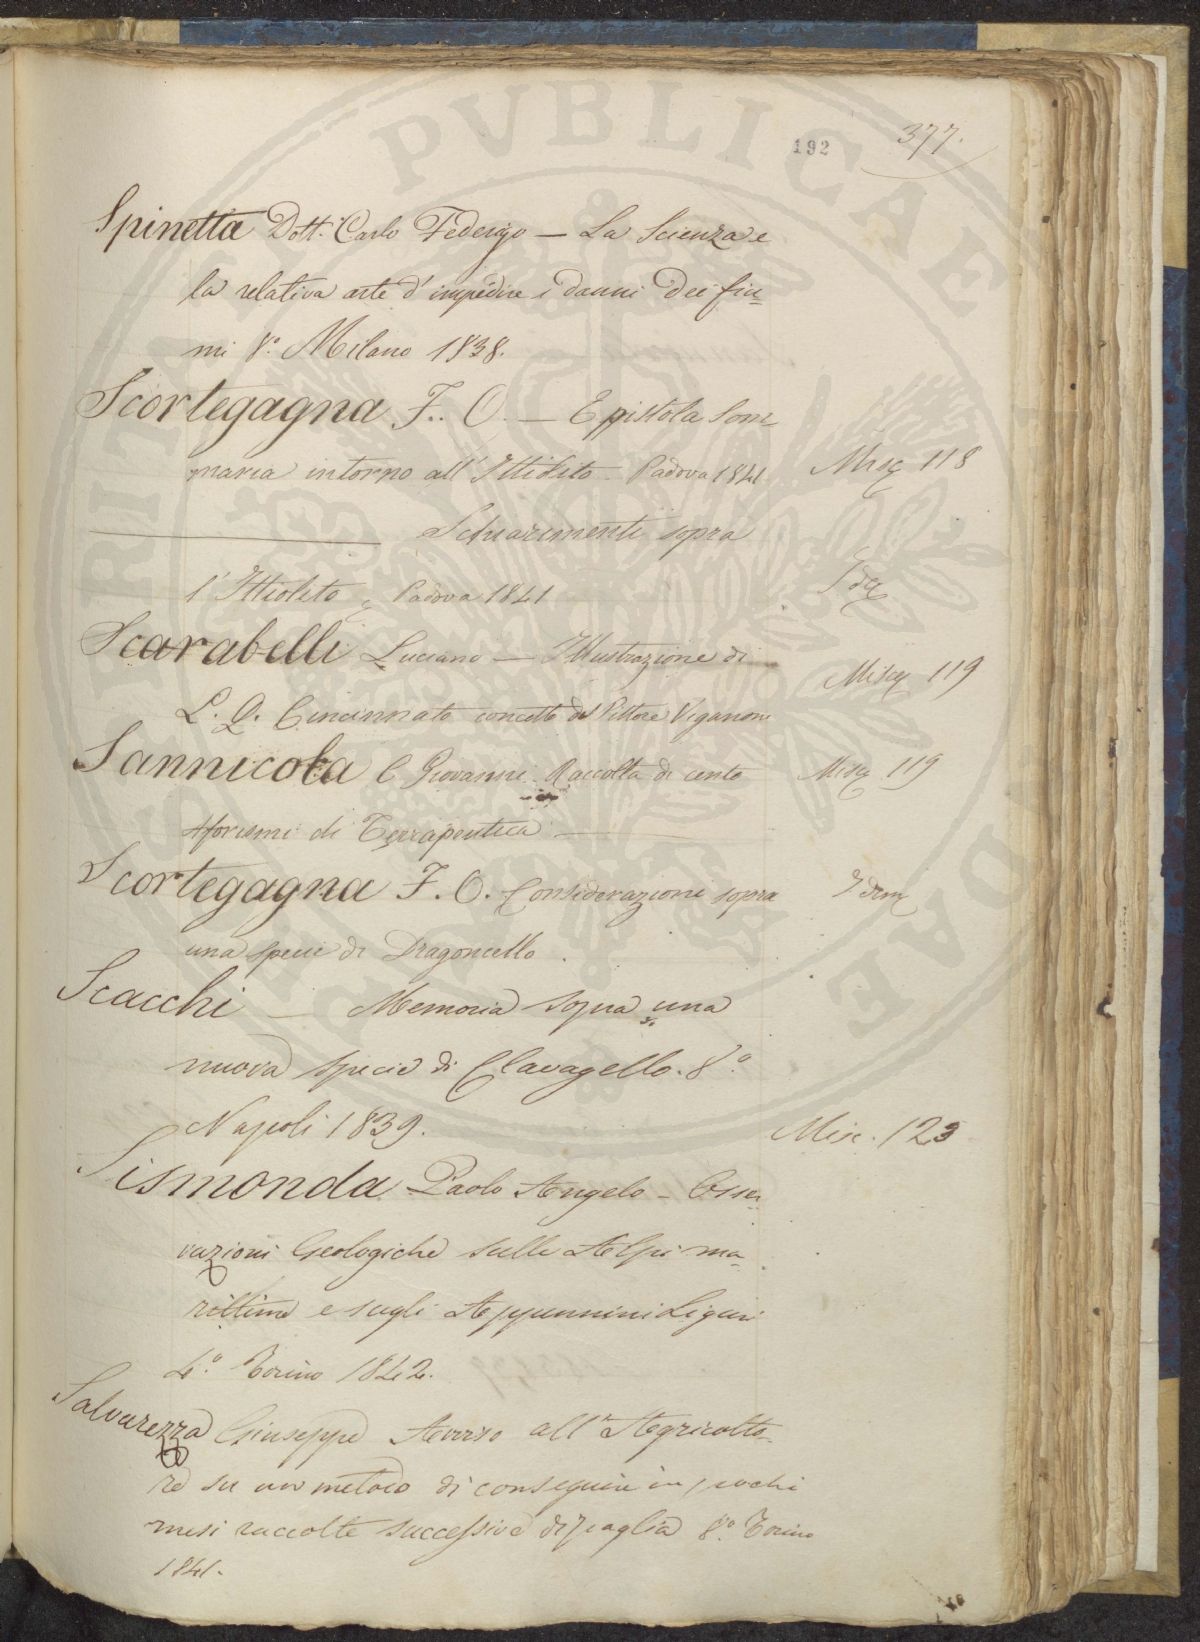 192 377.
Spinetta Dott. Carlo Federigo — La Scienza e
la relativa arte d'impedire i danni dei fiu=
mi 8.° Milano 1838.
Scortegagna F. O. — Epistola Som=
maria intorno all'Ittiolito - Padova 1841 Misc 118
Schiarimenti sopra
l'Ittiolito Padova 1841 Idem
Scarabelli Luciano — Illustrazione di
L. Q. Cincinnato concetto del Pittore Viganoni Misc 119
Sannicola C Giovanni Raccolta di cento Misc 119
Aforismi di Terrapeutica —
Scortegagna F. O. Considerazioni sopra Idem
una specie di Dragoncello.
Scacchi — Memoria sopra una
nuova specie di Clavagello. 8.°
Napoli 1839. Misc. 123
Sismonda Paolo Angelo - Osser=
vazioni Geologiche sulle Alpi ma=
rittime e sugli Appennini Liguri
4.° Torino 1842.
Salvarezza Giuseppe Avviso all'Agricolto=
re su un metodo di conseguire in pochi
mesi raccolte successive di paglia 8.° Torino
1841.